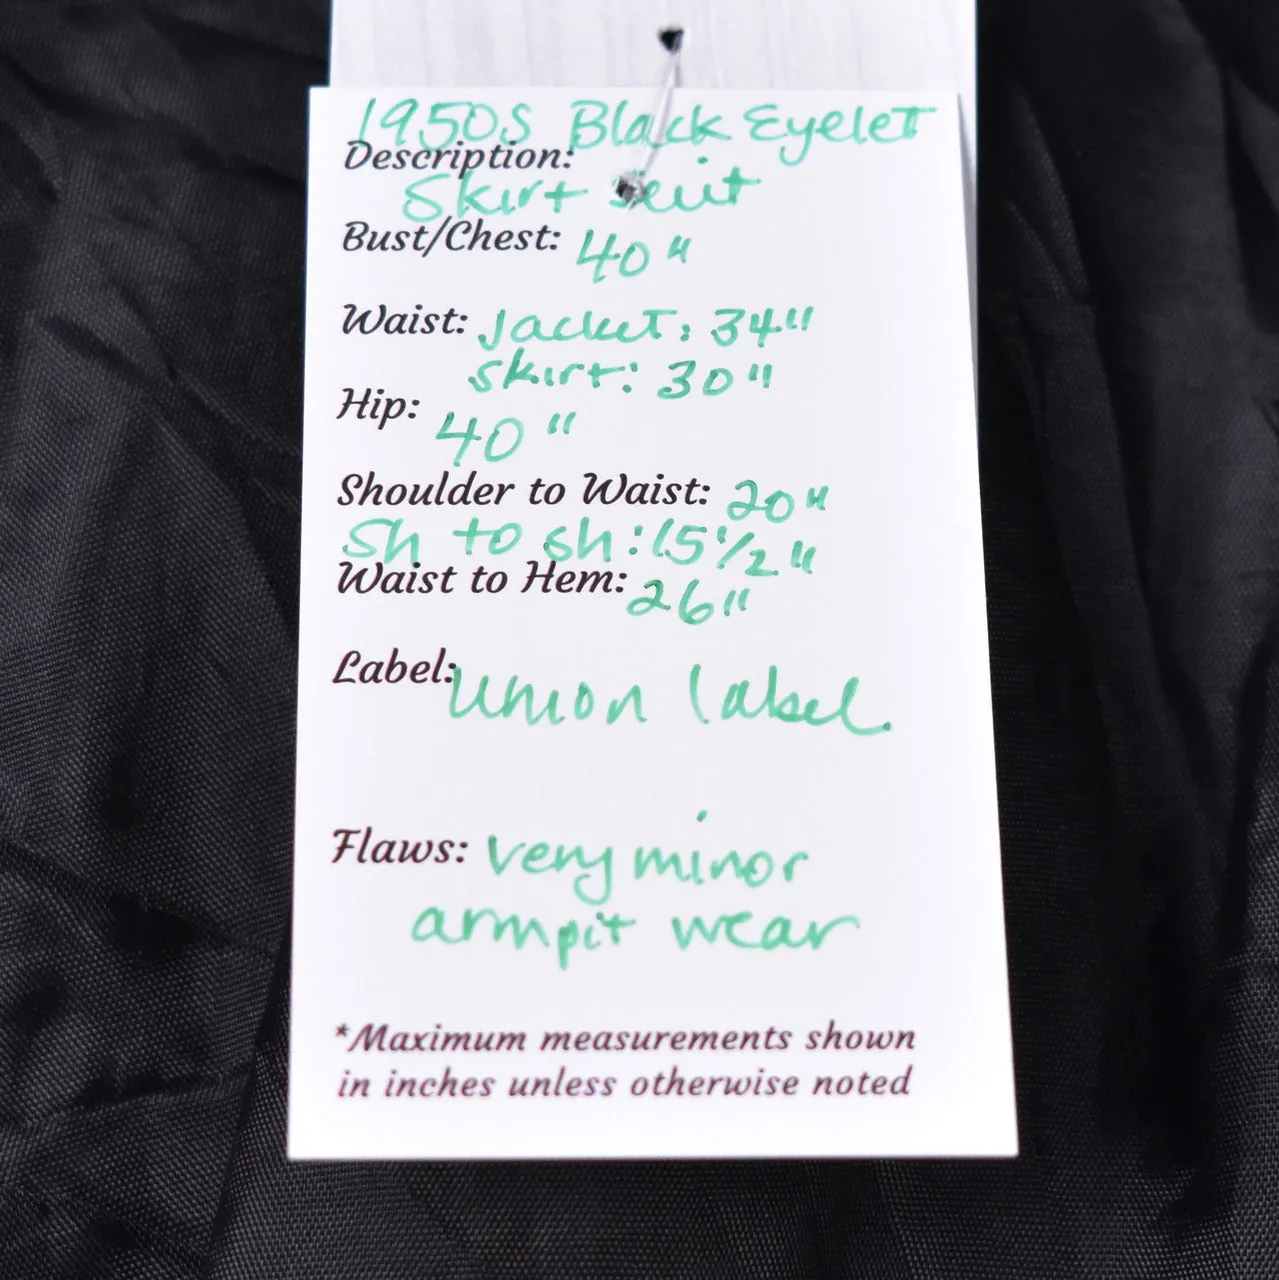 1950s Black Eyelet
Description:
Skirt suit
Bust/Chest: 40"
Waist: Jacket: 34"
skirt: 30"
Hip: 40"
Shoulder to Waist: 20"
Sh to sh: 15 1/2"
Waist to Hem: 26"
Label: Union label
Flaws: very minor
armpit wear
*Maximum measurements shown
in inches unless otherwise noted